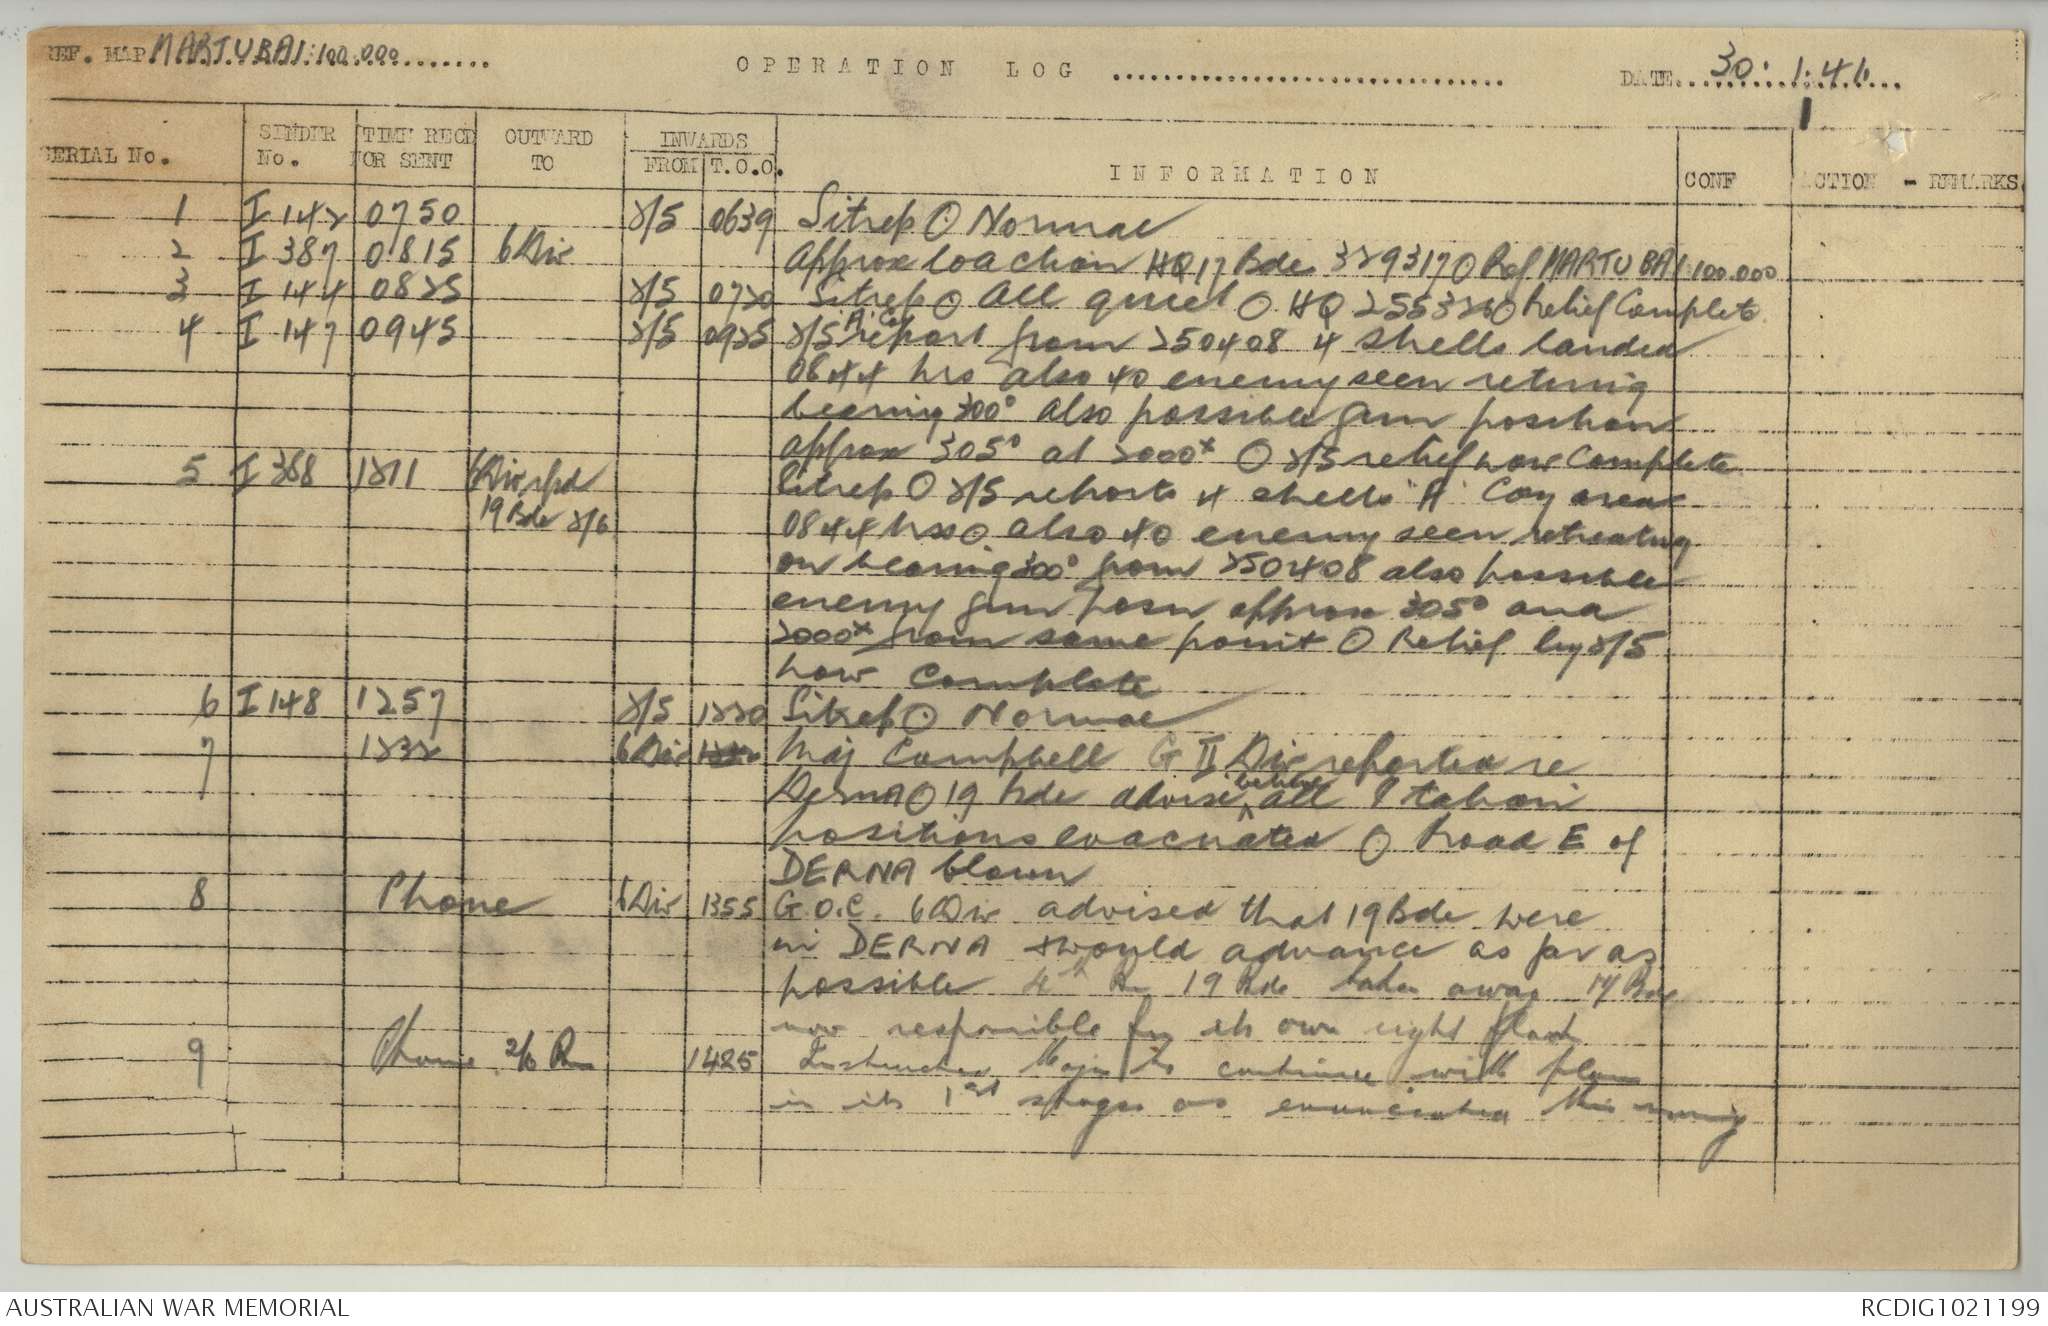 REF. MAP MARTUBA 1:100.000
OPERATION LOG
DATE 30.1.41.
1
SERIAL No. SENDER No. TIME RECD OR SENT OUTWARD TO INWARDS FROM T.O.O. INFORMATION CONF ACTION - REMARKS
1 I 142 0750 2/5 0639 Sitrep O Normal
2 I 387 0815 6 Div Approx loaction HQ 17 Bde 329317 O Ref MARTUBA 1:100.000
3 I 144 0825 2/5 0720 Sitrep O All quiet O HQ 255326 O Relief Complete
4 I 147 0945 2/5 0925 2/5 "A" Coy report from 250408 4 shells landed
0844 hrs also 40 enemy seen retiring
bearing 300° also possible gun position
approx 305° at 2000x O 2/5 relief now complete
5 I 388 1211 6 Div rptd Sitrep O 2/5 reports 4 shells "A" Coy area
19 Bde 2/6 0844 hrs O also 40 enemy seen retreating
on bearing 300° from 250408 also possible
enemy gun posn approx 305° and
2000x from same point O Relief by 2/5
now complete
6 I 148 1257 2/5 1220 Sitrep O Normal
7 1232 6 Div Maj Campbell G II Div reported re
Derna O 19 Bde advise believe all Italian
positions evacuated O Road E of
DERNA blown
8 Phone 6 Div 1355 G.O.C. 6 Div advised that 19 Bde were
in DERNA & would advance as far as
possible 4th Bn 19 Bde taken away 17 Bde
now responsible for its own right flank
9 Phone 2/6 Bn 1425 Instructed Major to continue with plan
in its 1st stages as enunciated this morning
AUSTRALIAN WAR MEMORIAL
RCDIG1021199